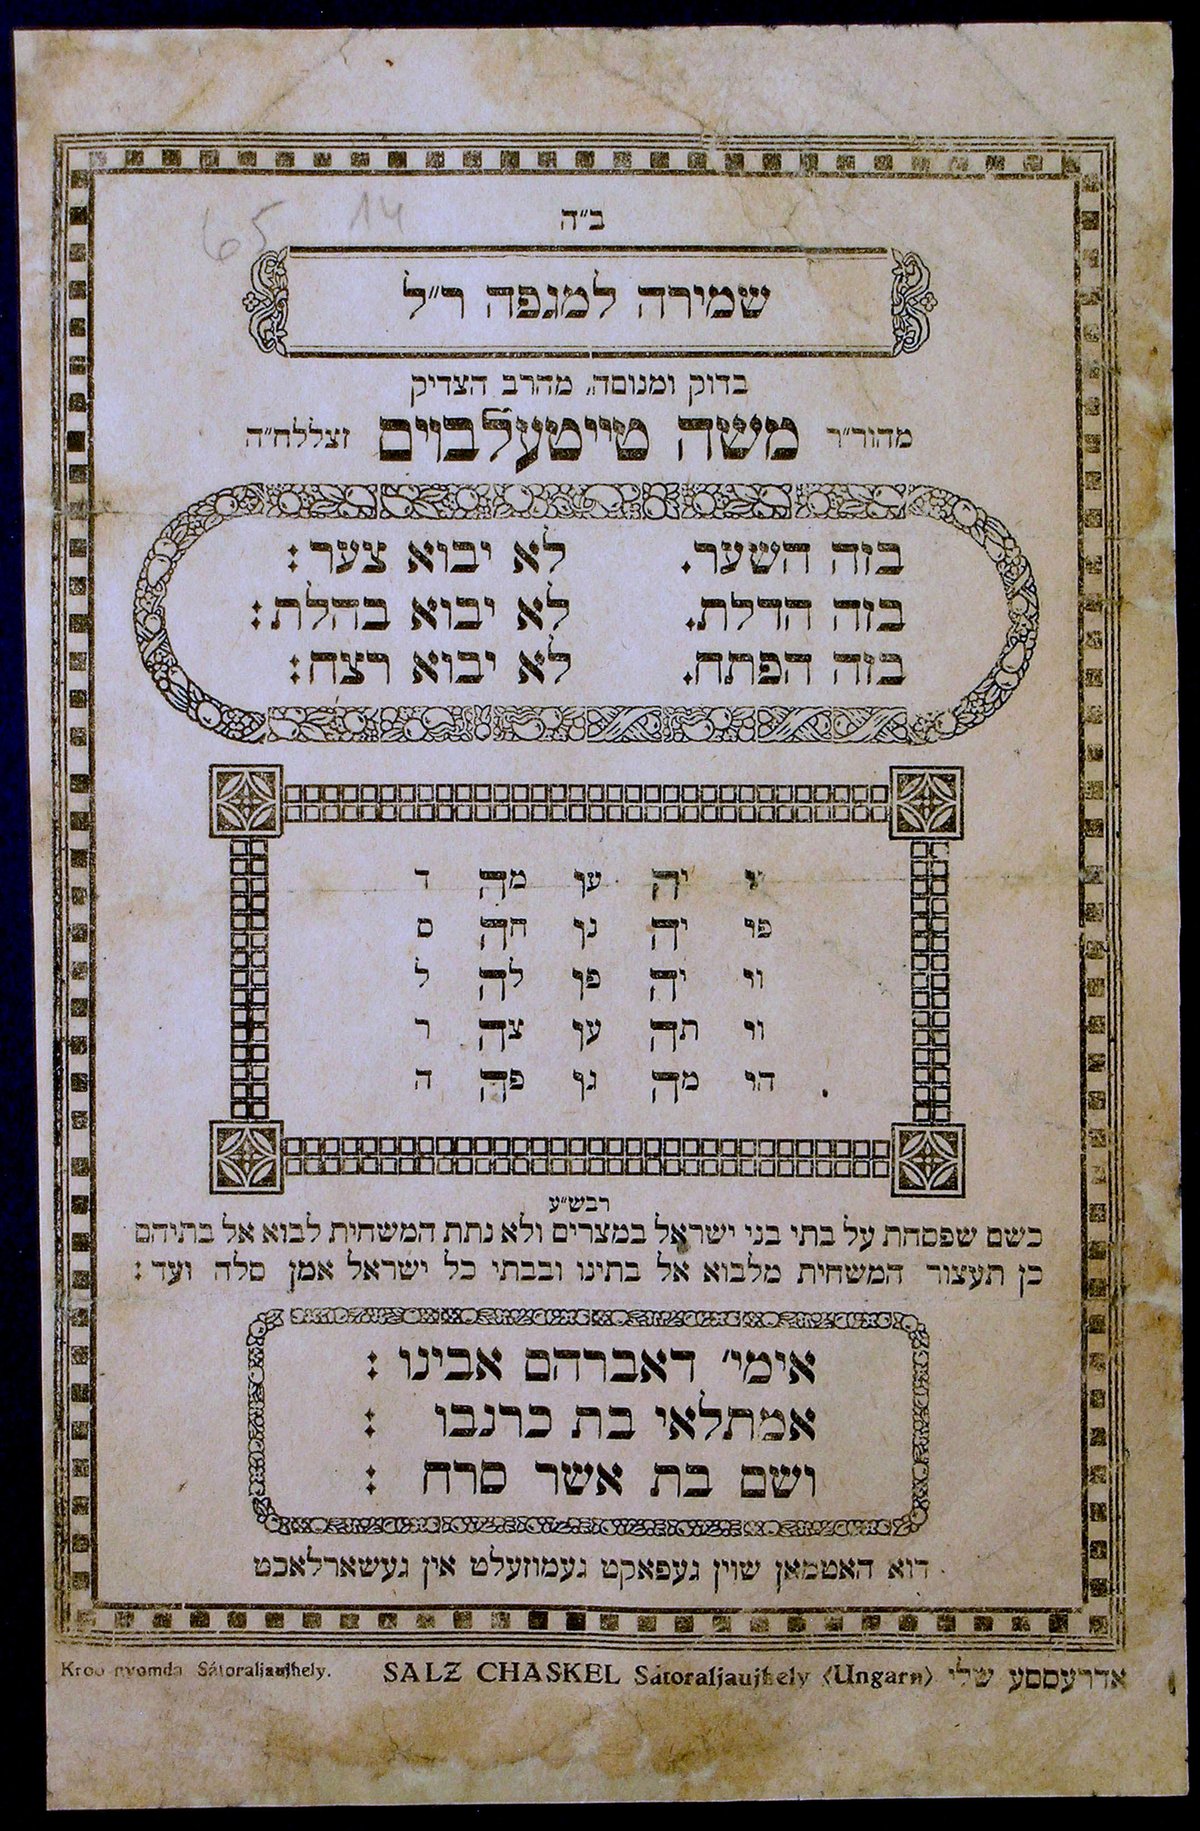 65 14
ב״ה
שמירה למגפה ר״ל
בדוק ומנוסה, מהרב הצדיק
מהור״ר משה טייטעלבוים זצללח״ה
בזה השער. לא יבוא צער :
בזה הדלת. לא יבוא בהלת :
בזה הפתח. לא יבוא רצח :
יה עון מה ד
פו יה נון חה ס
וו יה פון לה ל
וו תה עון צה ר
הו מה גון פה ה
רבש״ע
כשם שפסחת על בתי בני ישראל במצרים ולא נתת המשחית לבוא אל בתיהם
כן תעצור המשחית מלבוא אל בתינו ובבתי כל ישראל אמן סלה ועד :
אימי׳ דאברהם אבינו :
אמתלאי בת כרנבו :
ושם בת אשר סרח :
דוא האטמאן שוין געפאקט געמוזעלט אין געשארלאכט
אדרעססע שלי SALZ CHASKEL Sátoraljaujhely (Ungarn)
Kroo nyomda Sátoraljaujhely.